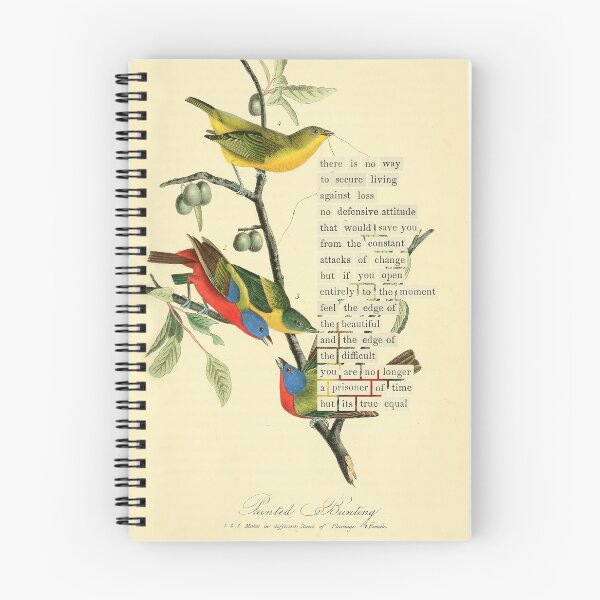 4
there is no way
to secure living
against loss
no defensive attitude
that would save you
from the constant
attacks of change
but if you open
entirely to the moment
feel the edge of
the beautiful
and the edge of
the difficult
you are no longer
a prisoner of time
but its true equal
2
3
Painted Bunting
1. 2. 3. Males in different States of Plumage. 4. Female.